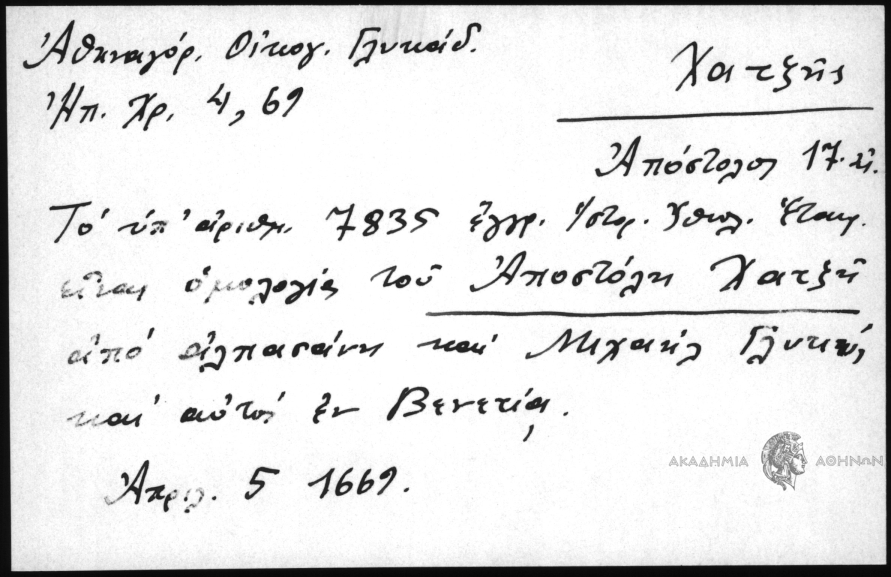 Ἀθηναγόρ. Οἰκογ. Γλυκάδ.
Ἠπ. Χρ. 4, 69
Χατζῆς
Ἀπόστολος 17. αἰ.
Τό ὑπ' ἀριθμ. 7835 ἔγγρ. Ἱστορ. Ἐθνολ. Ἑταιρ.
εἶναι ὁμολογία τοῦ Ἀποστόλη Χατζῆ
ἀπό ἀλπασάνη καί Μιχαήλ Γλυκύ,
καί αὐτοί ἐν Βενετίᾳ.
Ἀπριλ. 5 1669.
ΑΚΑΔΗΜΙΑ ΑΘΗΝΩΝ